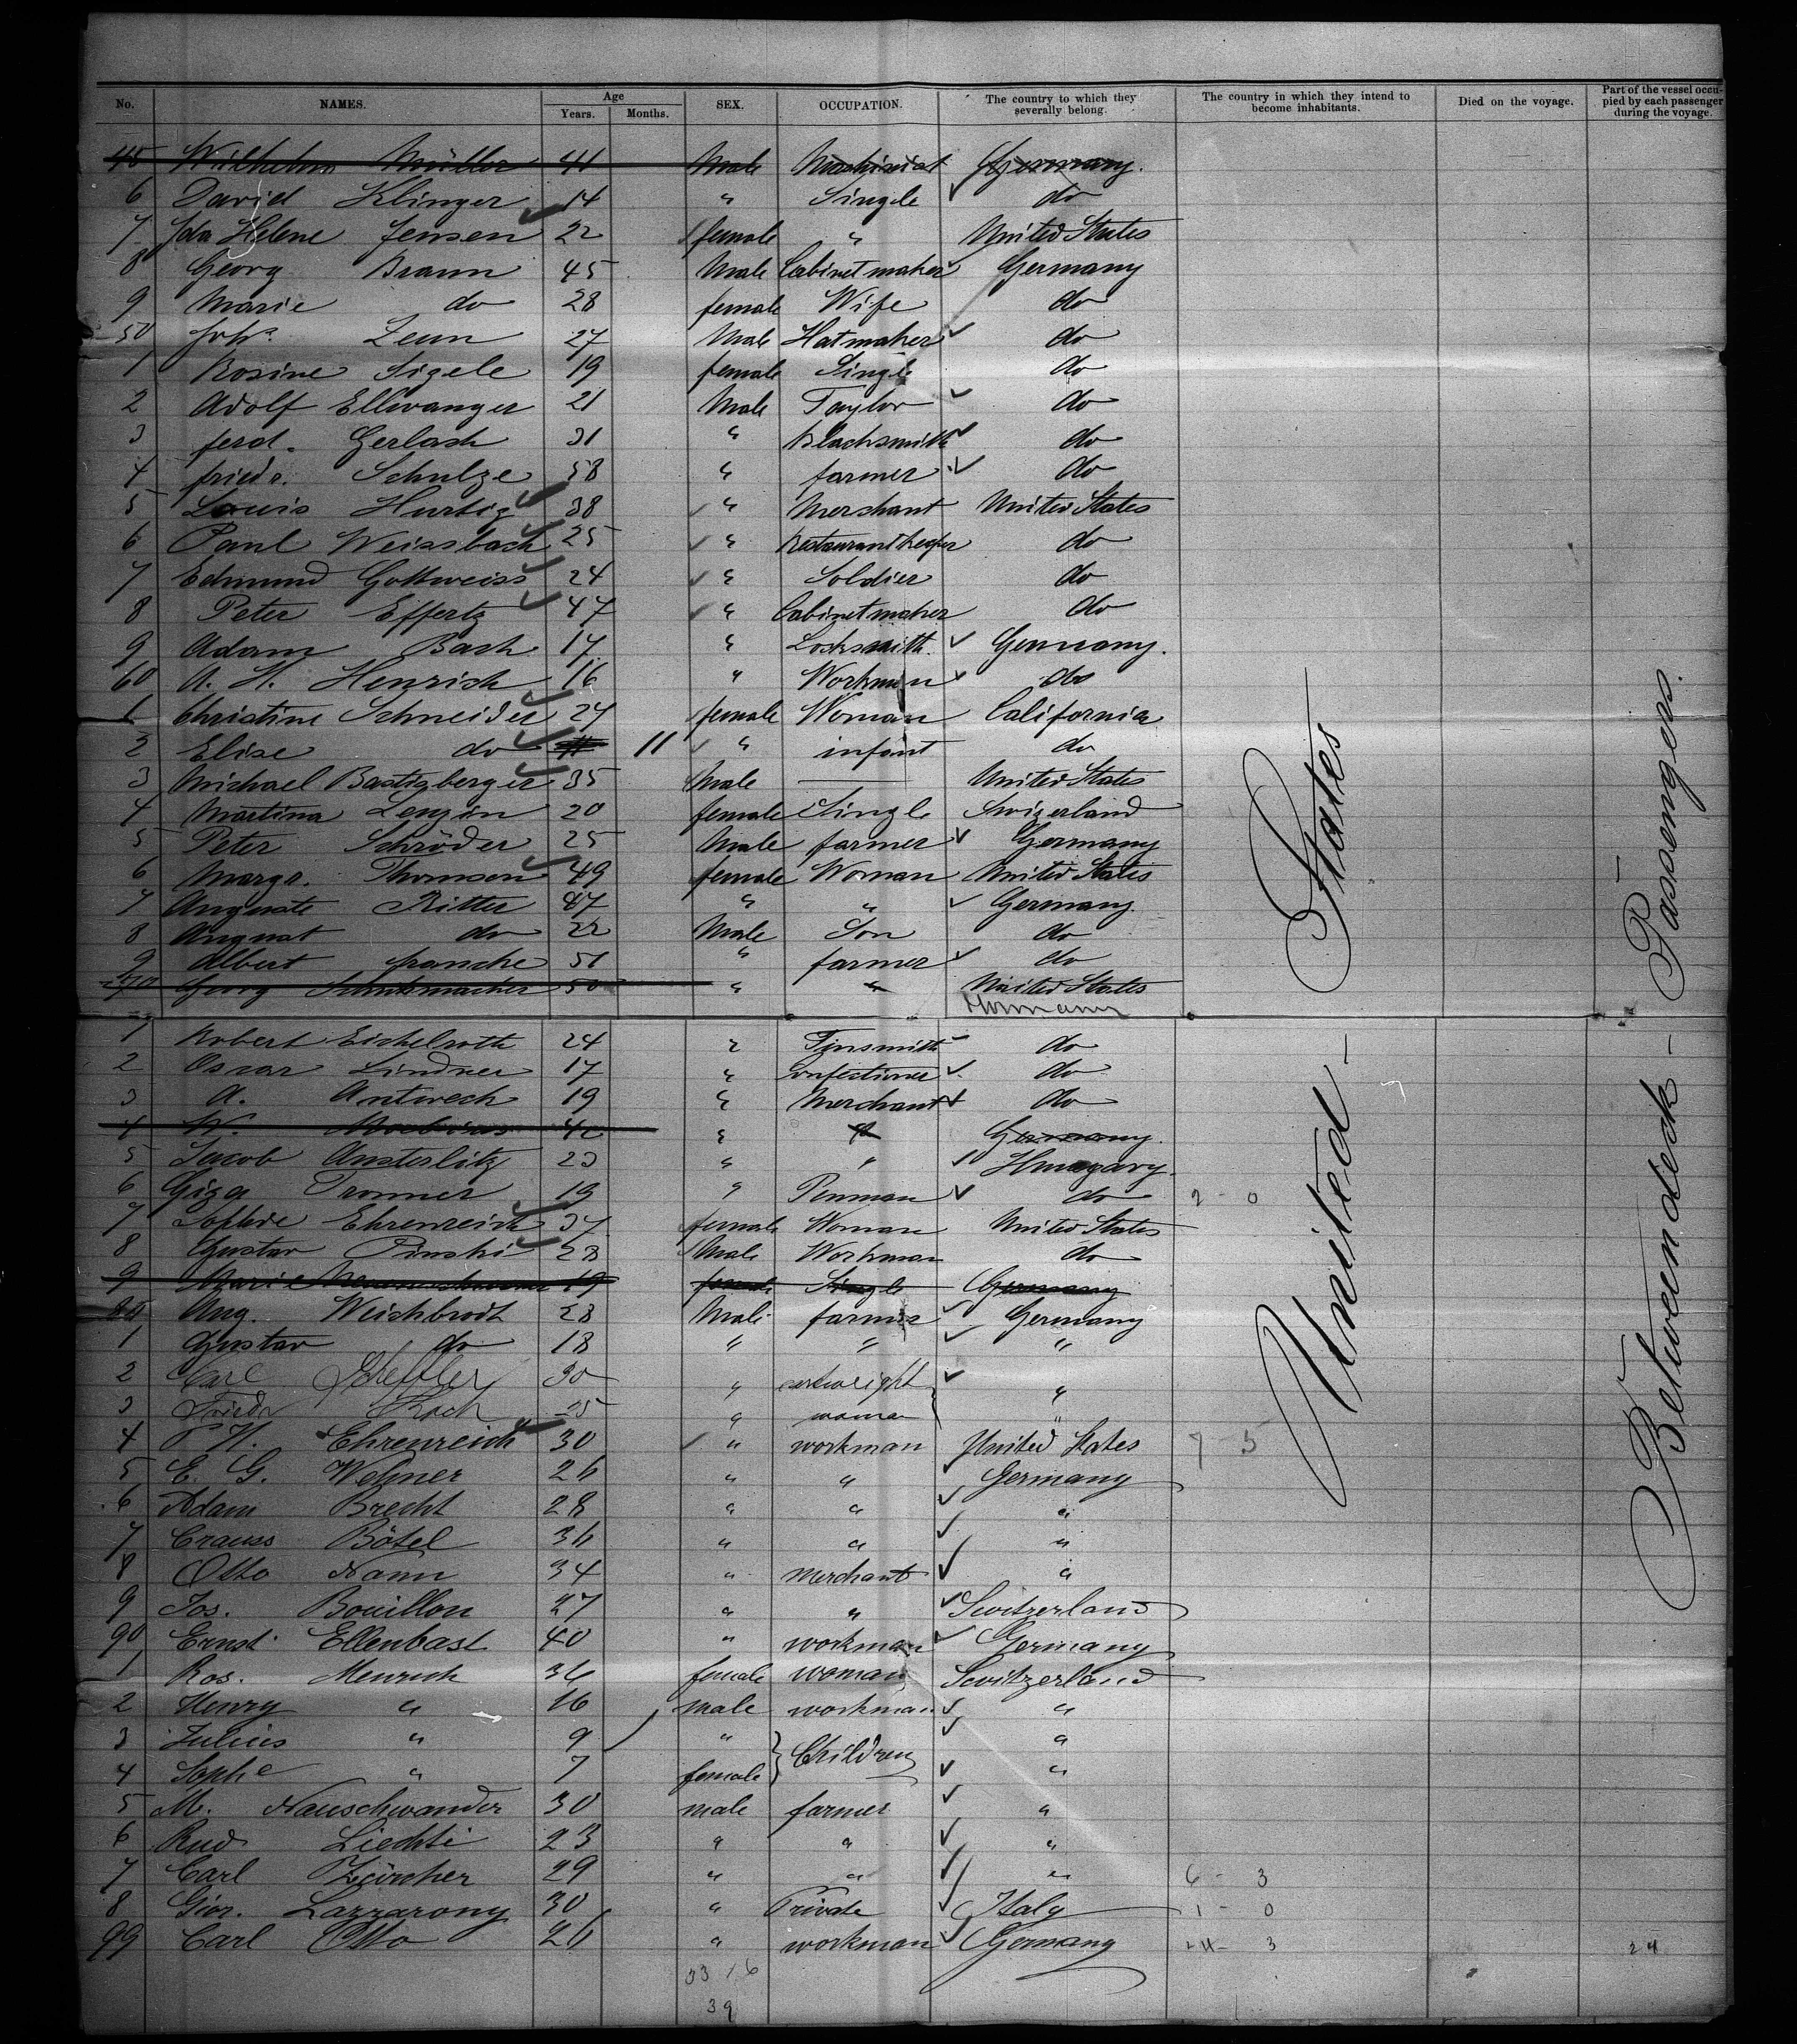 No. NAMES. Age Years. Months. SEX. OCCUPATION. The country to which they severally belong. The country in which they intend to become inhabitants. Died on the voyage. Part of the vessel occupied by each passenger during the voyage.
45 Wilhelm Müller 41 Male Machinist Germany.
6 David Klinger 14 " Single do
7 Ida Helene Jensen 22 female " United States
8 Georg Braun 45 Male Cabinetmaker Germany
9 Marie do 28 female Wife do
50 Joh. Zeun 27 Male Hatmaker do
1 Rosine Sigele 19 female Single do
2 Adolf Ellwanger 21 Male Taylor do
3 ferd. Gerlach 31 " Blacksmith do
4 friedr. Schulze 58 " farmer do
5 Louis Hurtig 38 " Merchant United States
6 Paul Weissbach 25 " Restaurantkeeper do
7 Edmund Gottweiss 24 " Soldier do
8 Peter Effertz 47 " Cabinetmaker do
9 Adam Bach 17 " Locksmith. Germany.
60 A. H. Henrich 16 " Workman do
1 Christine Schneider 27 female Woman California
2 Elise do 11 " infant do
3 Michael Bastizberger 35 Male United States
4 Martina Lenzin 20 female Single Swizerland
5 Peter Schröder 25 Male farmer Germany
6 Margr. Thomsen 49 female Woman United States
7 Auguste Ritter 47 " " Germany.
8 August do 22 Male Son do
9 Albert franche 51 " farmer do
70 Georg Schuhmacher 50 " " United States
Germany
1 Robert Eichelroth 24 " Tinsmith do
2 Oscar Lindner 17 " Confectioner do
3 A. Antwech 19 " Merchant do
4 W. 42 " " Germany.
5 Jacob Austerlitz 23 " " Hungary.
6 Giza Tronner 19 " Penman do 2 - 0
7 Sophie Ehrenreich 37 female Woman United States
8 Gustav Pinski 28 Male Workman do
9 Marie 19 female Single Germany
80 Aug. Weichbrodt 28 Male farmer Germany
1 Gustav do 18 " " "
2 Carl Scheffler 30 " cartwright "
3 Friedr Koch 25 " woman "
4 P H. Ehrenreich 30 " workman United States 7 - 5
5 E. G. Wehner 26 " " Germany
6 Adam Brecht 28 " " "
7 Crauss Bötel 36 " " "
8 Otto Nann 34 " merchant "
9 Jos. Bouillon 27 " " Switzerland
90 Ernst Ellenbast 40 " workman Germany
1 Ros. Menrich 36 female woman Switzerland
2 Henry " 16 male workman "
3 Julius " 9 " Children "
4 Sophe " 7 female "
5 M. Nauschwander 30 male farmer "
6 Rud Liechti 23 " " "
7 Carl Zürcher 29 " " " 6 - 3
8 Gior. Lazzarony 30 " Private Italy 1 - 0
99 Carl Otto 26 " workman Germany 3 24
33 / 6
39
United States
Betweendeck - Passengers.